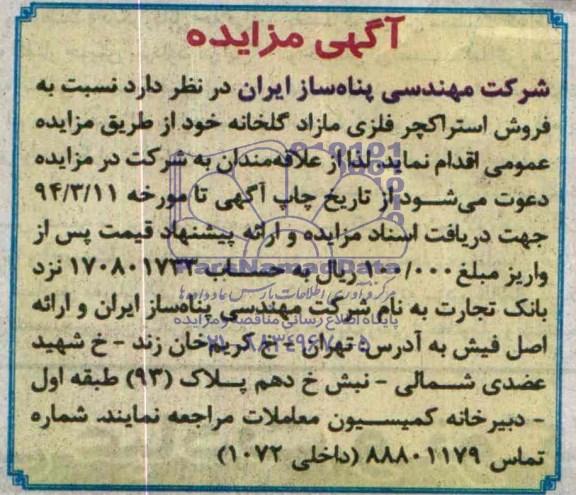 آگهی مزایده
شرکت مهندسی پناه‌ساز ایران در نظر دارد نسبت به
فروش استراکچر فلزی مازاد گلخانه خود از طریق مزایده
عمومی اقدام نماید. لذا از علاقه‌مندان به شرکت در مزایده
دعوت می‌شود از تاریخ چاپ آگهی تا مورخه ۹۴/۳/۱۱
جهت دریافت اسناد مزایده و ارائه پیشنهاد قیمت پس از
واریز مبلغ ۱۰۰/۰۰۰ ریال به حساب ۱۷۰۸۰۱۷۳۳ نزد
بانک تجارت به نام شرکت مهندسی پناه‌ساز ایران و ارائه
اصل فیش به آدرس: تهران - خ کریم‌خان زند - خ شهید
عضدی شمالی - نبش خ دهم پلاک (۹۳) طبقه اول
- دبیرخانه کمیسیون معاملات مراجعه نمایند. شماره
تماس ۸۸۸۰۱۱۷۹ (داخلی ۱۰۷۲)
ParsNamadData
مرکز فرآوری اطلاعات پارس نماد داده‌ها
پایگاه اطلاع رسانی مناقصه و مزایده